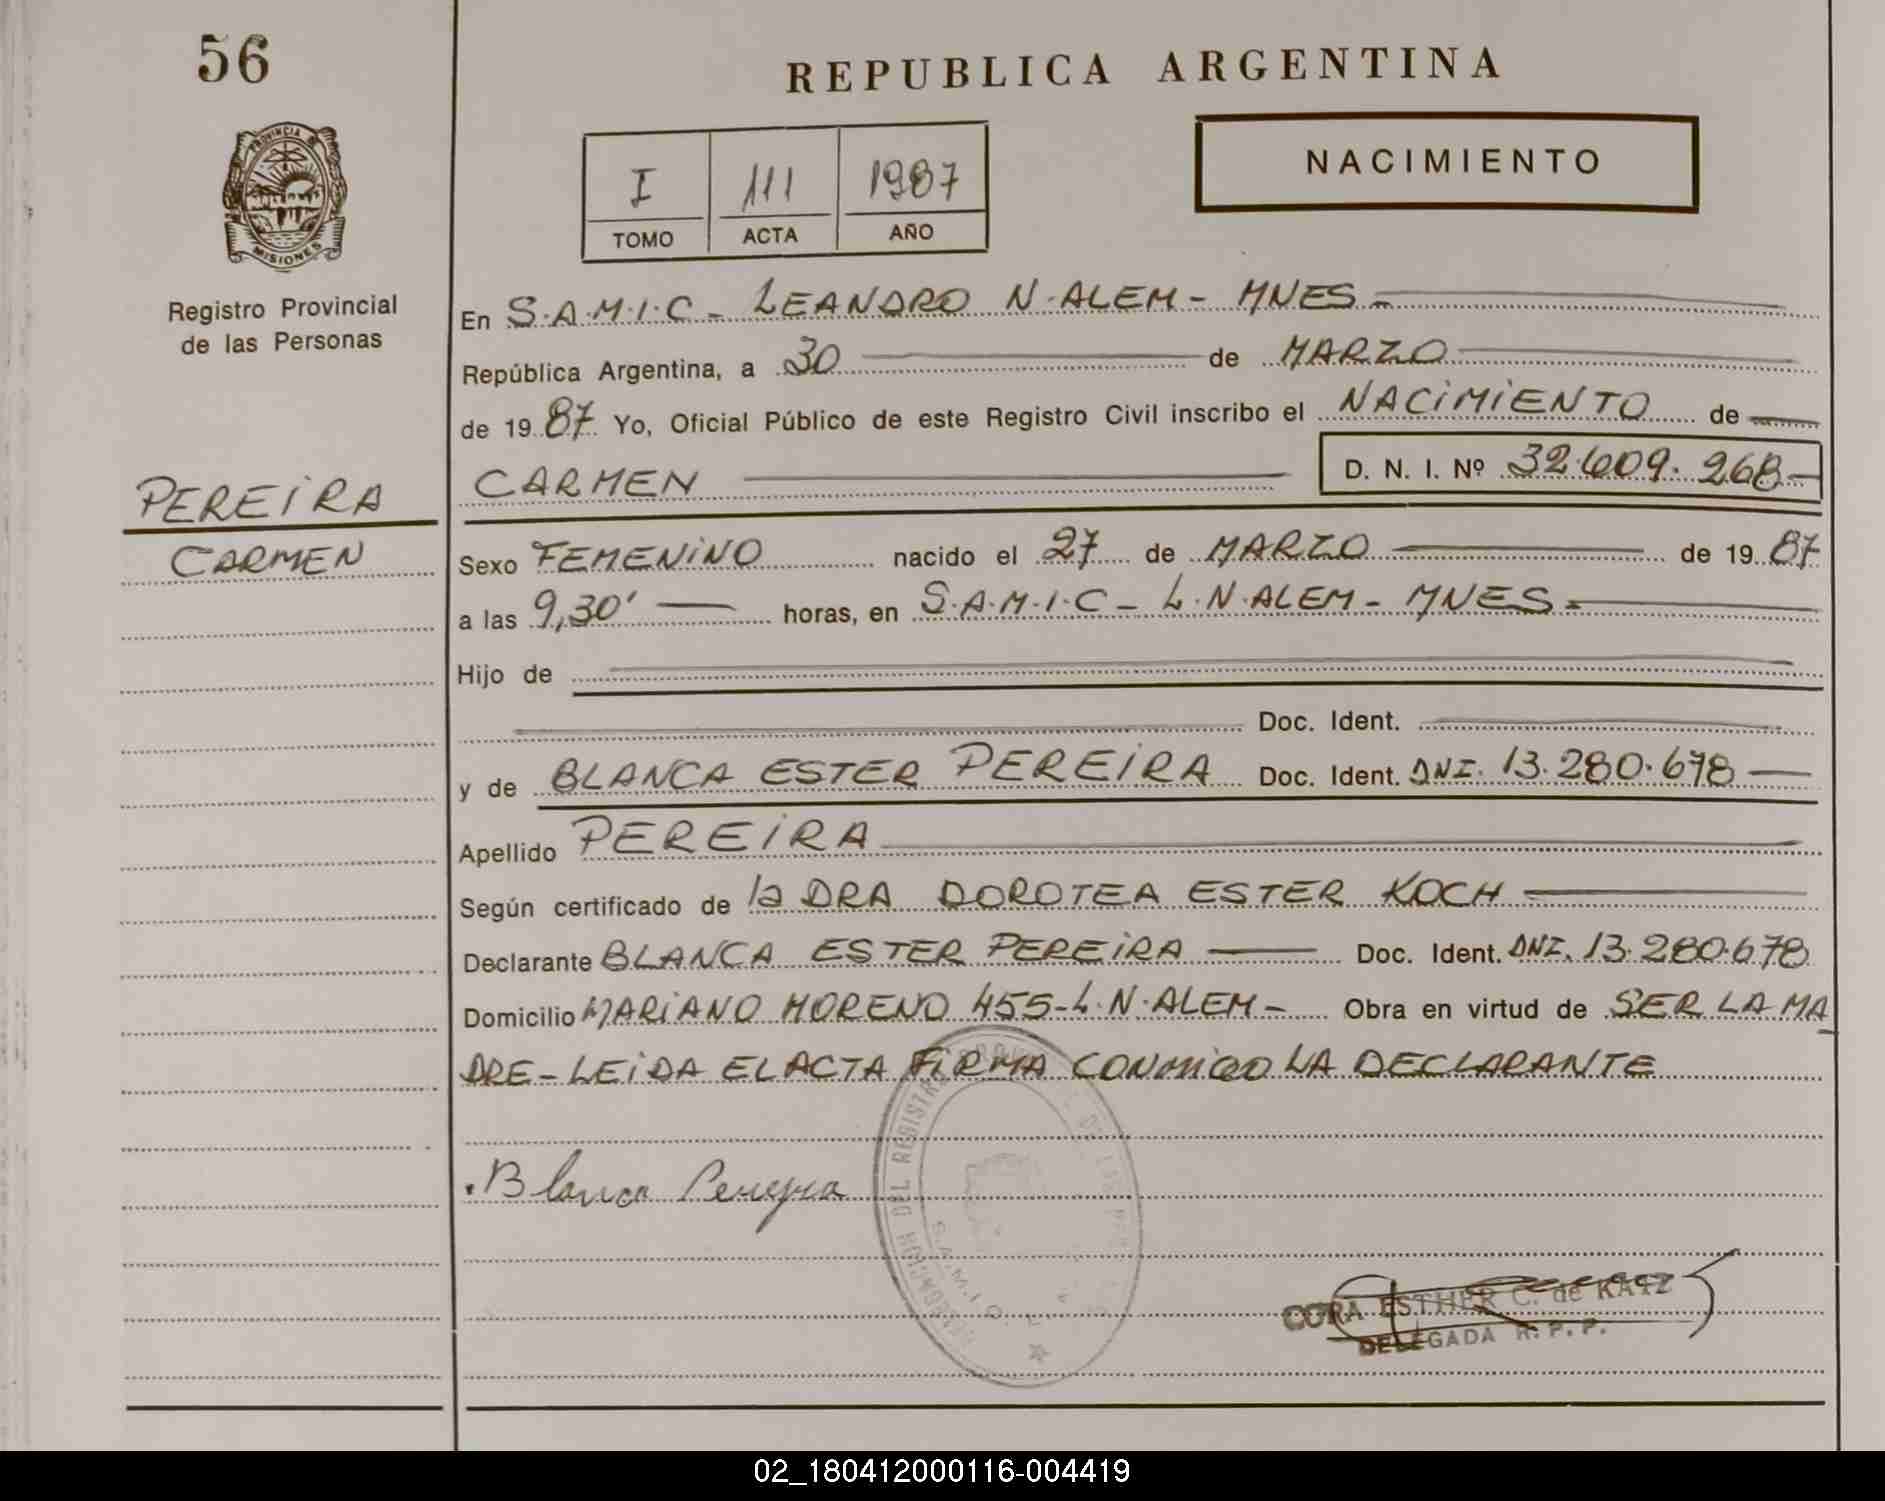 56
REPUBLICA ARGENTINA
PROVINCIA DE
MISIONES
I 111 1987
TOMO ACTA AÑO
NACIMIENTO
Registro Provincial
de las Personas
En S.A.M.I.C - LEANDRO N. ALEM - MNES -
República Argentina, a 30 de MARZO
de 1987 Yo, Oficial Público de este Registro Civil inscribo el NACIMIENTO de
PEREIRA
CARMEN
CARMEN D. N. I. Nº 32.609.268-
Sexo FEMENINO nacido el 27 de MARZO de 1987
a las 9,30' horas, en S.A.M.I.C - L.N. ALEM - MNES -
Hijo de
Doc. Ident.
y de BLANCA ESTER PEREIRA Doc. Ident. DNI. 13.280.678
Apellido PEREIRA
Según certificado de la DRA DOROTEA ESTER KOCH
Declarante BLANCA ESTER PEREIRA Doc. Ident. DNI. 13.280.678
Domicilio MARIANO MORENO 455-L.N. ALEM - Obra en virtud de SER LA MA
DRE - LEIDA EL ACTA FIRMA CONMIGO LA DECLARANTE
Blanca Pereyra
DEL REGISTRO
S.A.M.I.C
CORA ESTHER C. de KATZ
DELEGADA R. P. P.
02_180412000116-004419